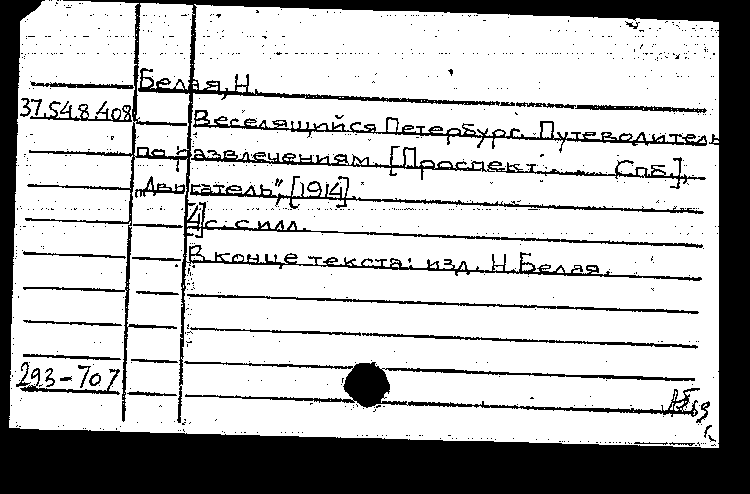 Белая, Н.
37.54.8.408
Веселящийся Петербург. Путеводитель
по развлечениям. [Проспект. ... Спб.],
„Двигатель", [1914].
4] с. с илл.
В конце текста: изд. Н. Белая.
293-707